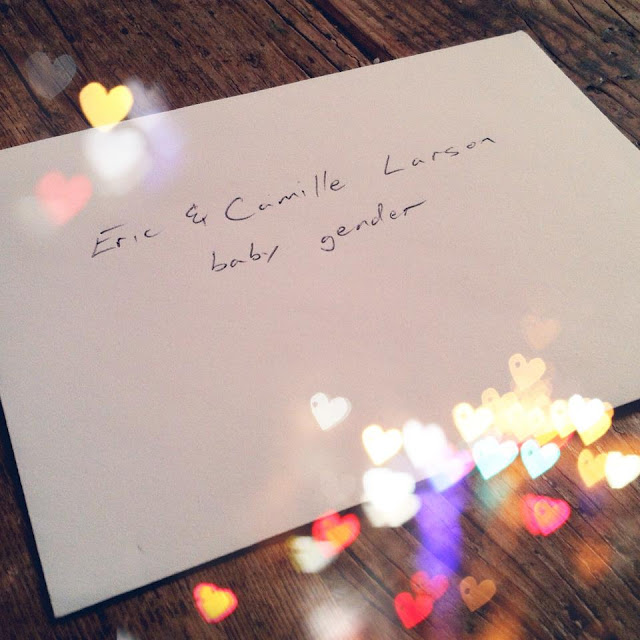 Eric & Camille Larson
baby gender